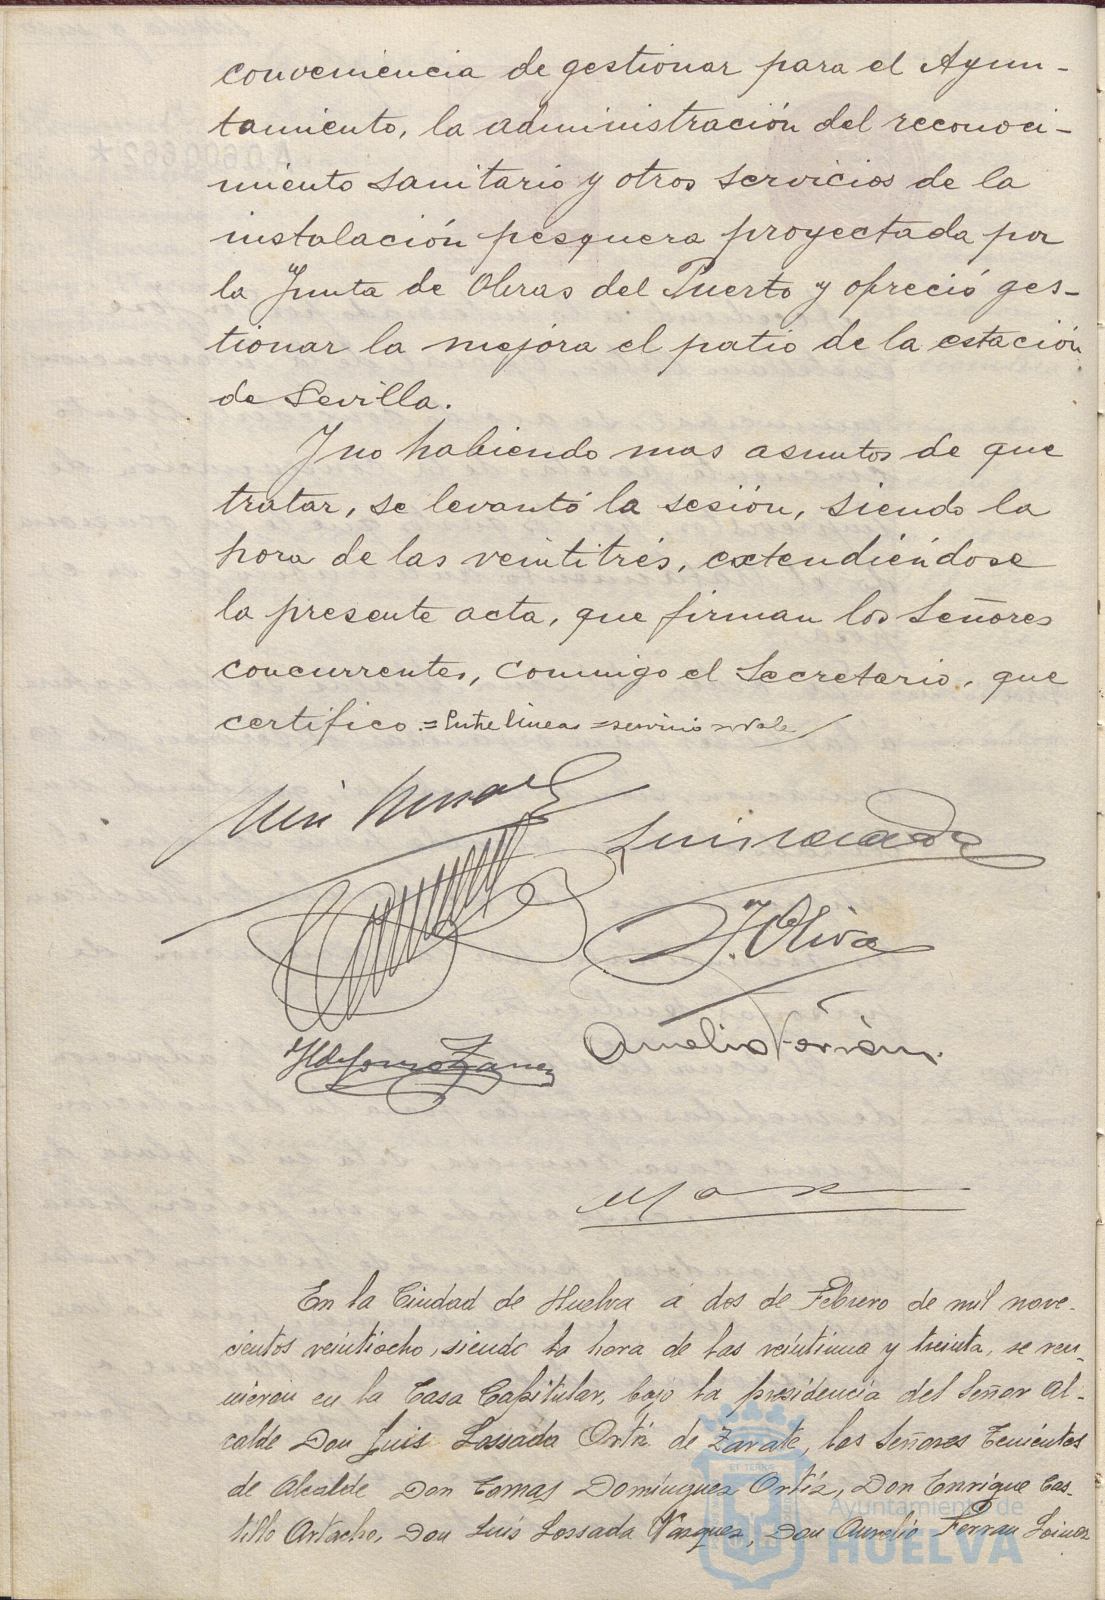 conveniencia de gestionar para el Ayun-
tamiento, la administración del reconoci-
miento sanitario y otros servicios de la
instalación pesquera proyectada por
la Junta de Obras del Puerto y ofreció ges-
tionar la mejora el patio de la estación
de Sevilla.
Y no habiendo mas asuntos de que
tratar, se levantó la sesión, siendo la
hora de las veintitrés, extendiéndose
la presente acta, que firman los Señores
concurrentes, conmigo el Secretario, que
certifico.=Entre lineas=servicio=Vale
J. Oliva
Aurelio
Ildefonso
En la Ciudad de Huelva á dos de Febrero de mil nove-
cientos veintiocho, siendo la hora de las veintiuna y treinta, se reu-
nieron en la Casa Capitular, bajo la presidencia del Señor Al-
calde Don Luis Lossada Ortiz de Zarate, los Señores Tenientes
de Alcalde Don Tomas Dominguez Ortiz, Don Enrique Cas-
tillo Artacho, Don Luis Lossada Vazquez, Don Aurelio Ferran
Ayuntamiento de
HUELVA